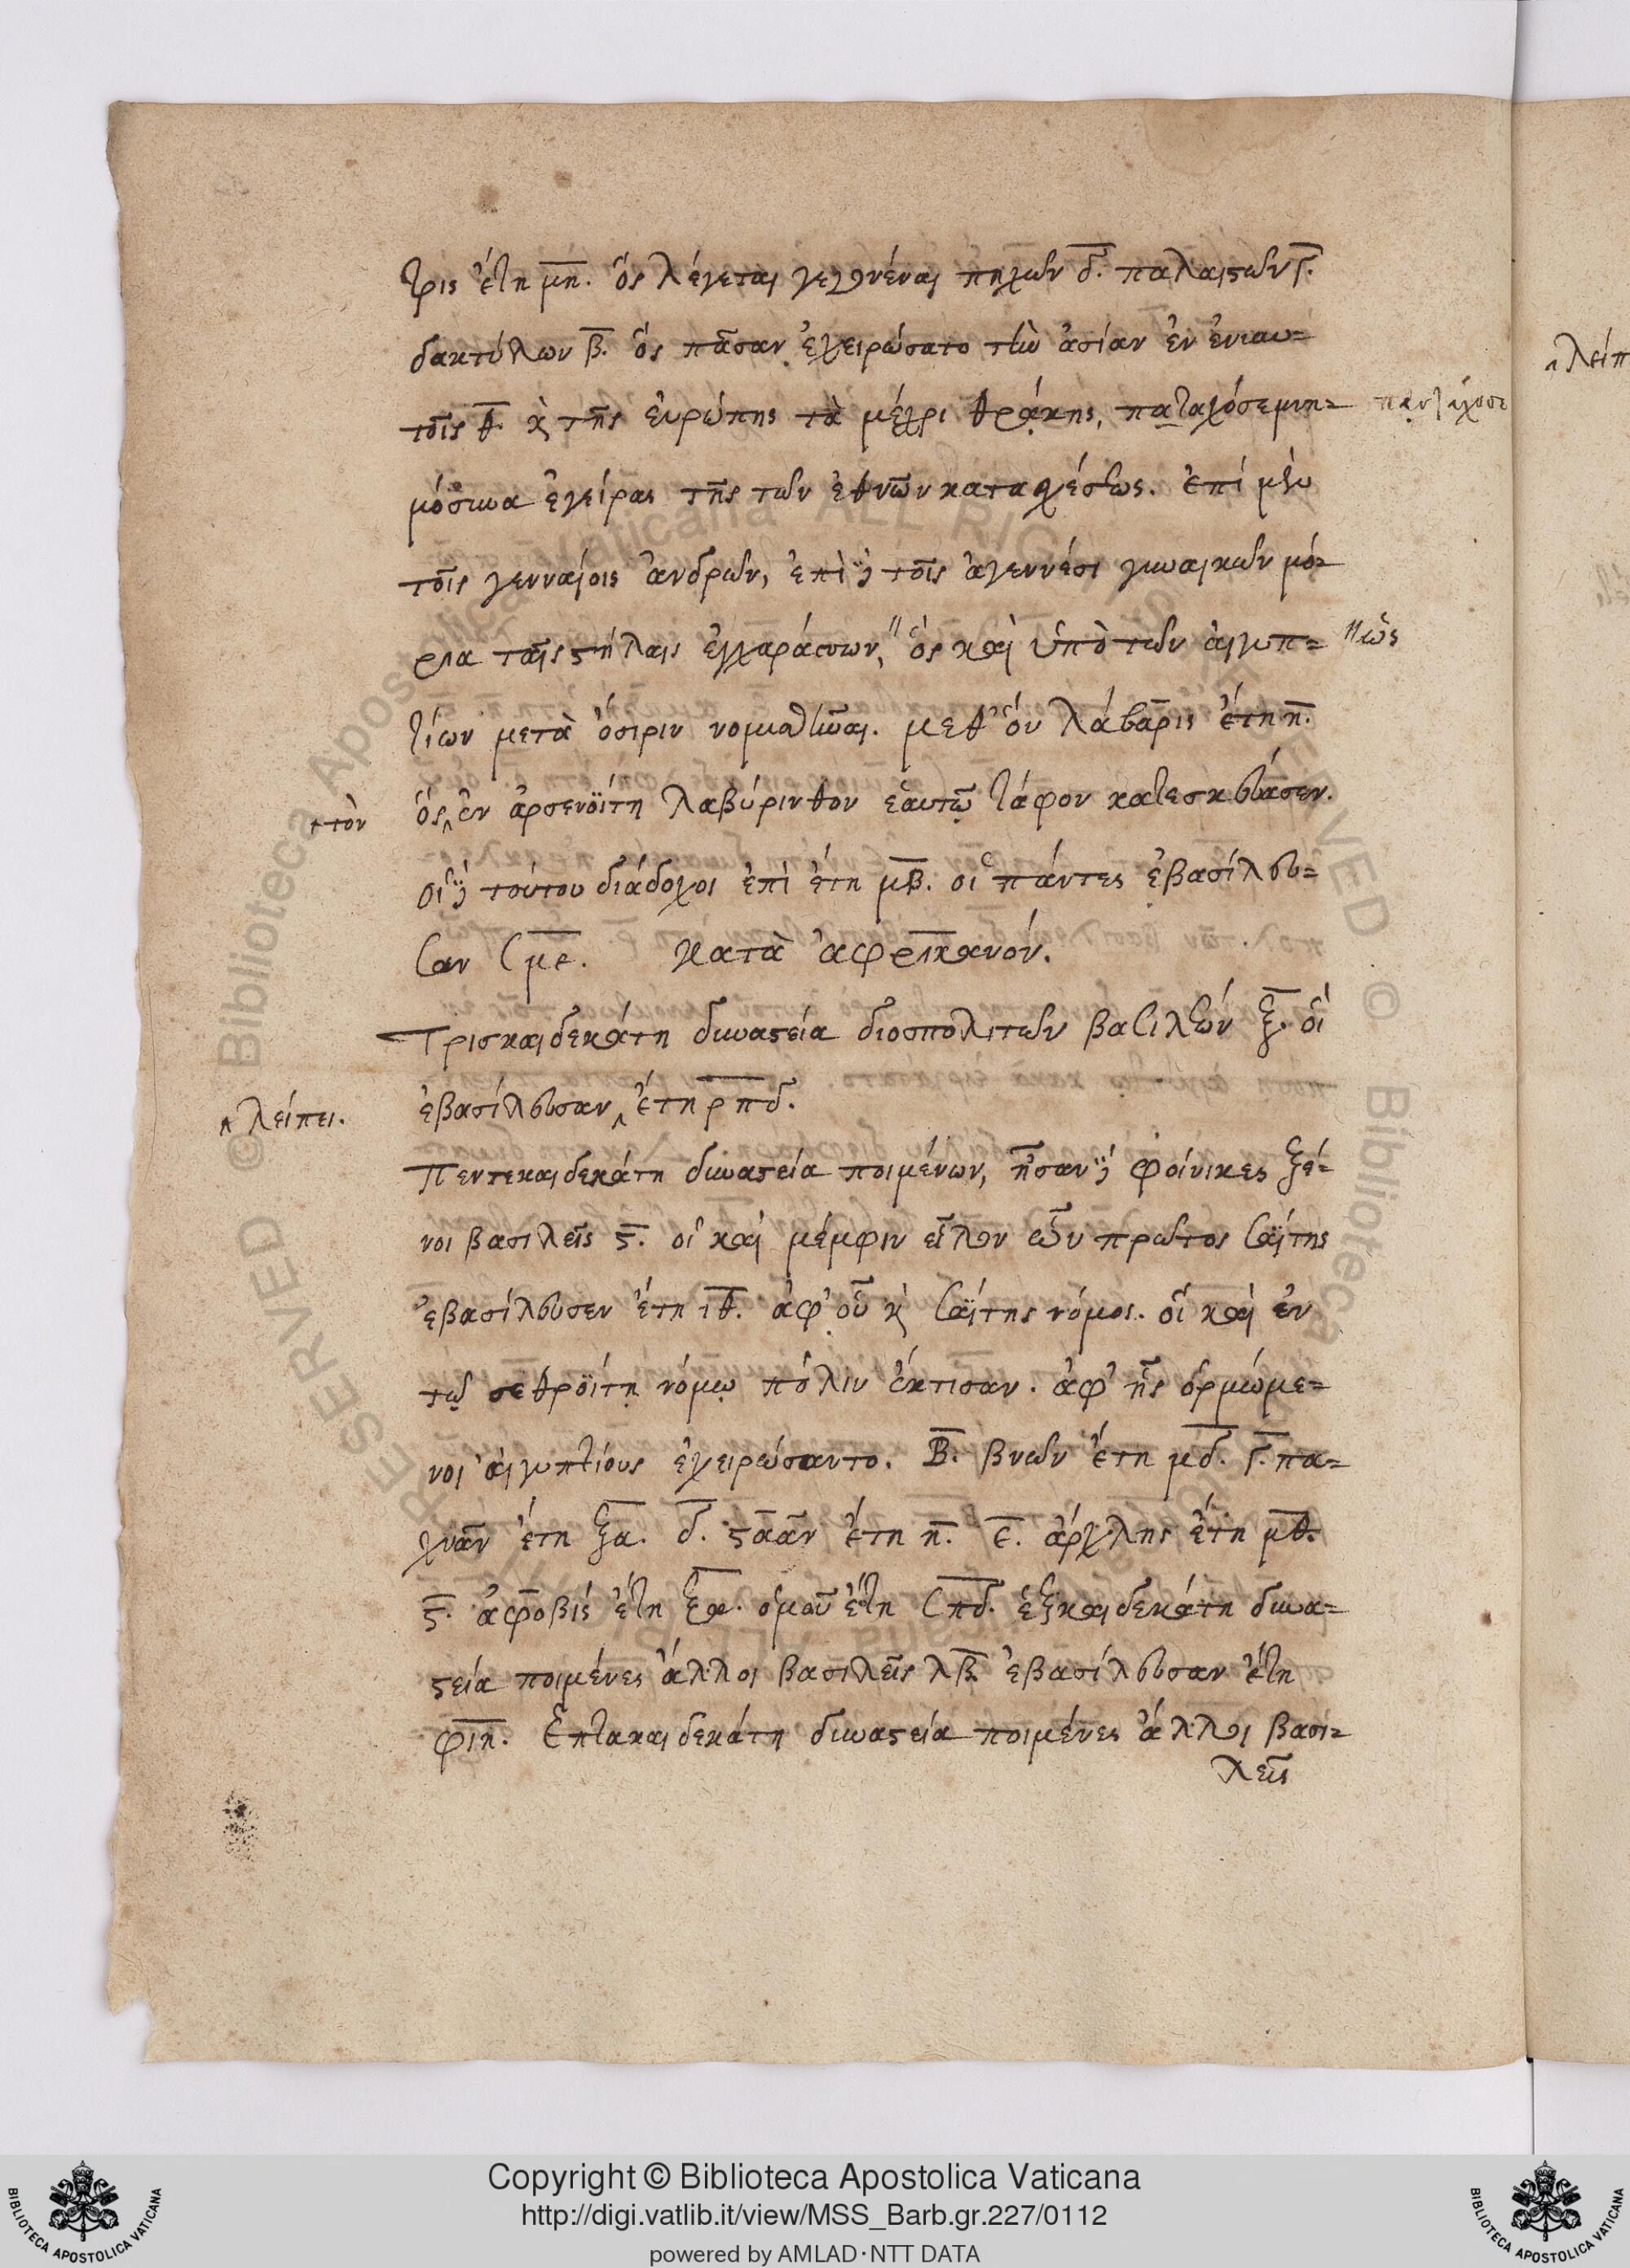 τρις ἔτη μη. ὃς λέγεται γεγονέναι πηχῶν δ. παλαιστῶν γ.
δακτύλων β. ὃς πᾶσαν ἐχειρώσατο τὴν ἀσίαν ἐν ἐνιαυ=
τοῖς θ. κ τῆς εὐρώπης τὰ μέχρι θρᾴκης, παταχόσε μνη=
μόσυνα ἐγείρας τῆς τῶν ἐθνῶν κατασχέσεως. ἐπὶ μὲν
τοῖς γενναίοις ἀνδρῶν, ἐπὶ δὲ τοῖς ἀγεννέσι γυναικῶν μό=
ρια ταῖς στήλαις ἐγχαράσσων, ὃς καὶ ὑπὸ τῶν αἰγυπ= "ὡς
τίων μετὰ ὄσιριν νομισθῆναι. μεθ' ὃν λάβαρις ἔτη η.
⸆τὸν ὃς ‸ἐν ἀρσενοΐτῃ λαβύρινθον ἑαυτῷ τάφον κατεσκεύασεν.
οἱ δὲ τούτου διάδοχοι ἐπὶ ἔτη μβ. οἱ πάντες ἐβασίλευ=
σαν σμε. κατὰ ἀφρικανόν.
Τρισκαιδεκάτη δυναστεία διοσπολιτῶν βασιλέων ξ. οἳ
‸ λείπει. ἐβασίλευσαν ‸ ἔτη ρπδ.
Πεντεκαιδεκάτη δυναστεία ποιμένων, ἦσαν δὲ φοίνικες ξέ=
νοι βασιλεῖς ϛ. οἳ καὶ μέμφιν εἷλον ὧν πρῶτος σαΐτης
ἐβασίλευσεν ἔτη ιθ. ἀφ' οὗ κ σαΐτης νόμος. οἳ καὶ ἐν
τῷ σεθροΐτῃ νόμῳ πόλιν ἔκτισαν. ἀφ' ἧς ὁρμώμε=
νοι αἰγυπτίους ἐχειρώσαντο. Β. βνῶν ἔτη μδ. γ. πα=
χνᾶν ἔτη ξα. δ. σταὰν ἔτη η. ε. ἄρχλης ἔτη μθ.
ϛ. ἄφοβις ἔτη ξα. ὁμοῦ ἔτη σπδ. ἑξκαιδεκάτη δυνα=
στεία ποιμένες ἄλλοι βασιλεῖς λβ ἐβασίλευσαν ἔτη
φιη. Ἑπτακαιδεκάτη δυναστεία ποιμένες ἄλλοι βασι=
λεῖς
Copyright © Biblioteca Apostolica Vaticana
http://digi.vatlib.it/view/MSS_Barb.gr.227/0112
powered by AMLAD·NTT DATA